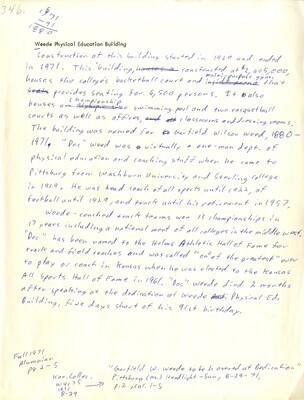 346.
1971
-91
1880
Weede Physical Education Building
Construction of this building started in 1969 and ended
in 1971. This building, constructed at $2,005,000,
houses the college's basketball court and multi-purpose gym, that
provides seating for 6,500 persons. It also
houses a championship swimming pool and two racquetball
courts as well as offices, classrooms and dressing rooms.
The building was named for Garfield Wilson Weede, 1880-
1971. "Doc" Weed was virtually a one-man dept. of
physical education and coaching staff when he came to
Pittsburg from Washburn University and Sterling college
in 1919. He was head coach of all sports until 1922, of
football until 1929, and track until his retirement in 1957.
Weede-coached track teams won 13 championships in
17 years including a national meet of all colleges in the middle west.
"Doc" has been named to the Helms Athletic Hall of Fame for
track and field coaches and was called "one of the greatest" ever
to play or coach in Kansas when he was elected to the Kansas
All Sports Hall of Fame in 1961. "Doc" Weede died 2 months
after speaking at the dedication of Weede Physical Ed.
Building, five days short of his 91st birthday.
Fall 1971
Alumnian
pg. 2-5
Kan. Collec.
B-29
"Garfield W. Weede to be honored at Dedication"
Pittsburg (Ks.) Headlight-Sun, 8-29-71,
p. 2, col. 1-5